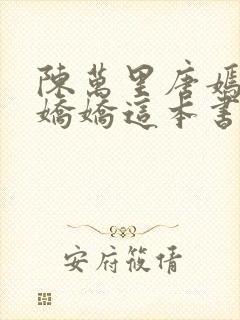 陳萬里唐嫣
嬌嬌這本書
安府筱倩